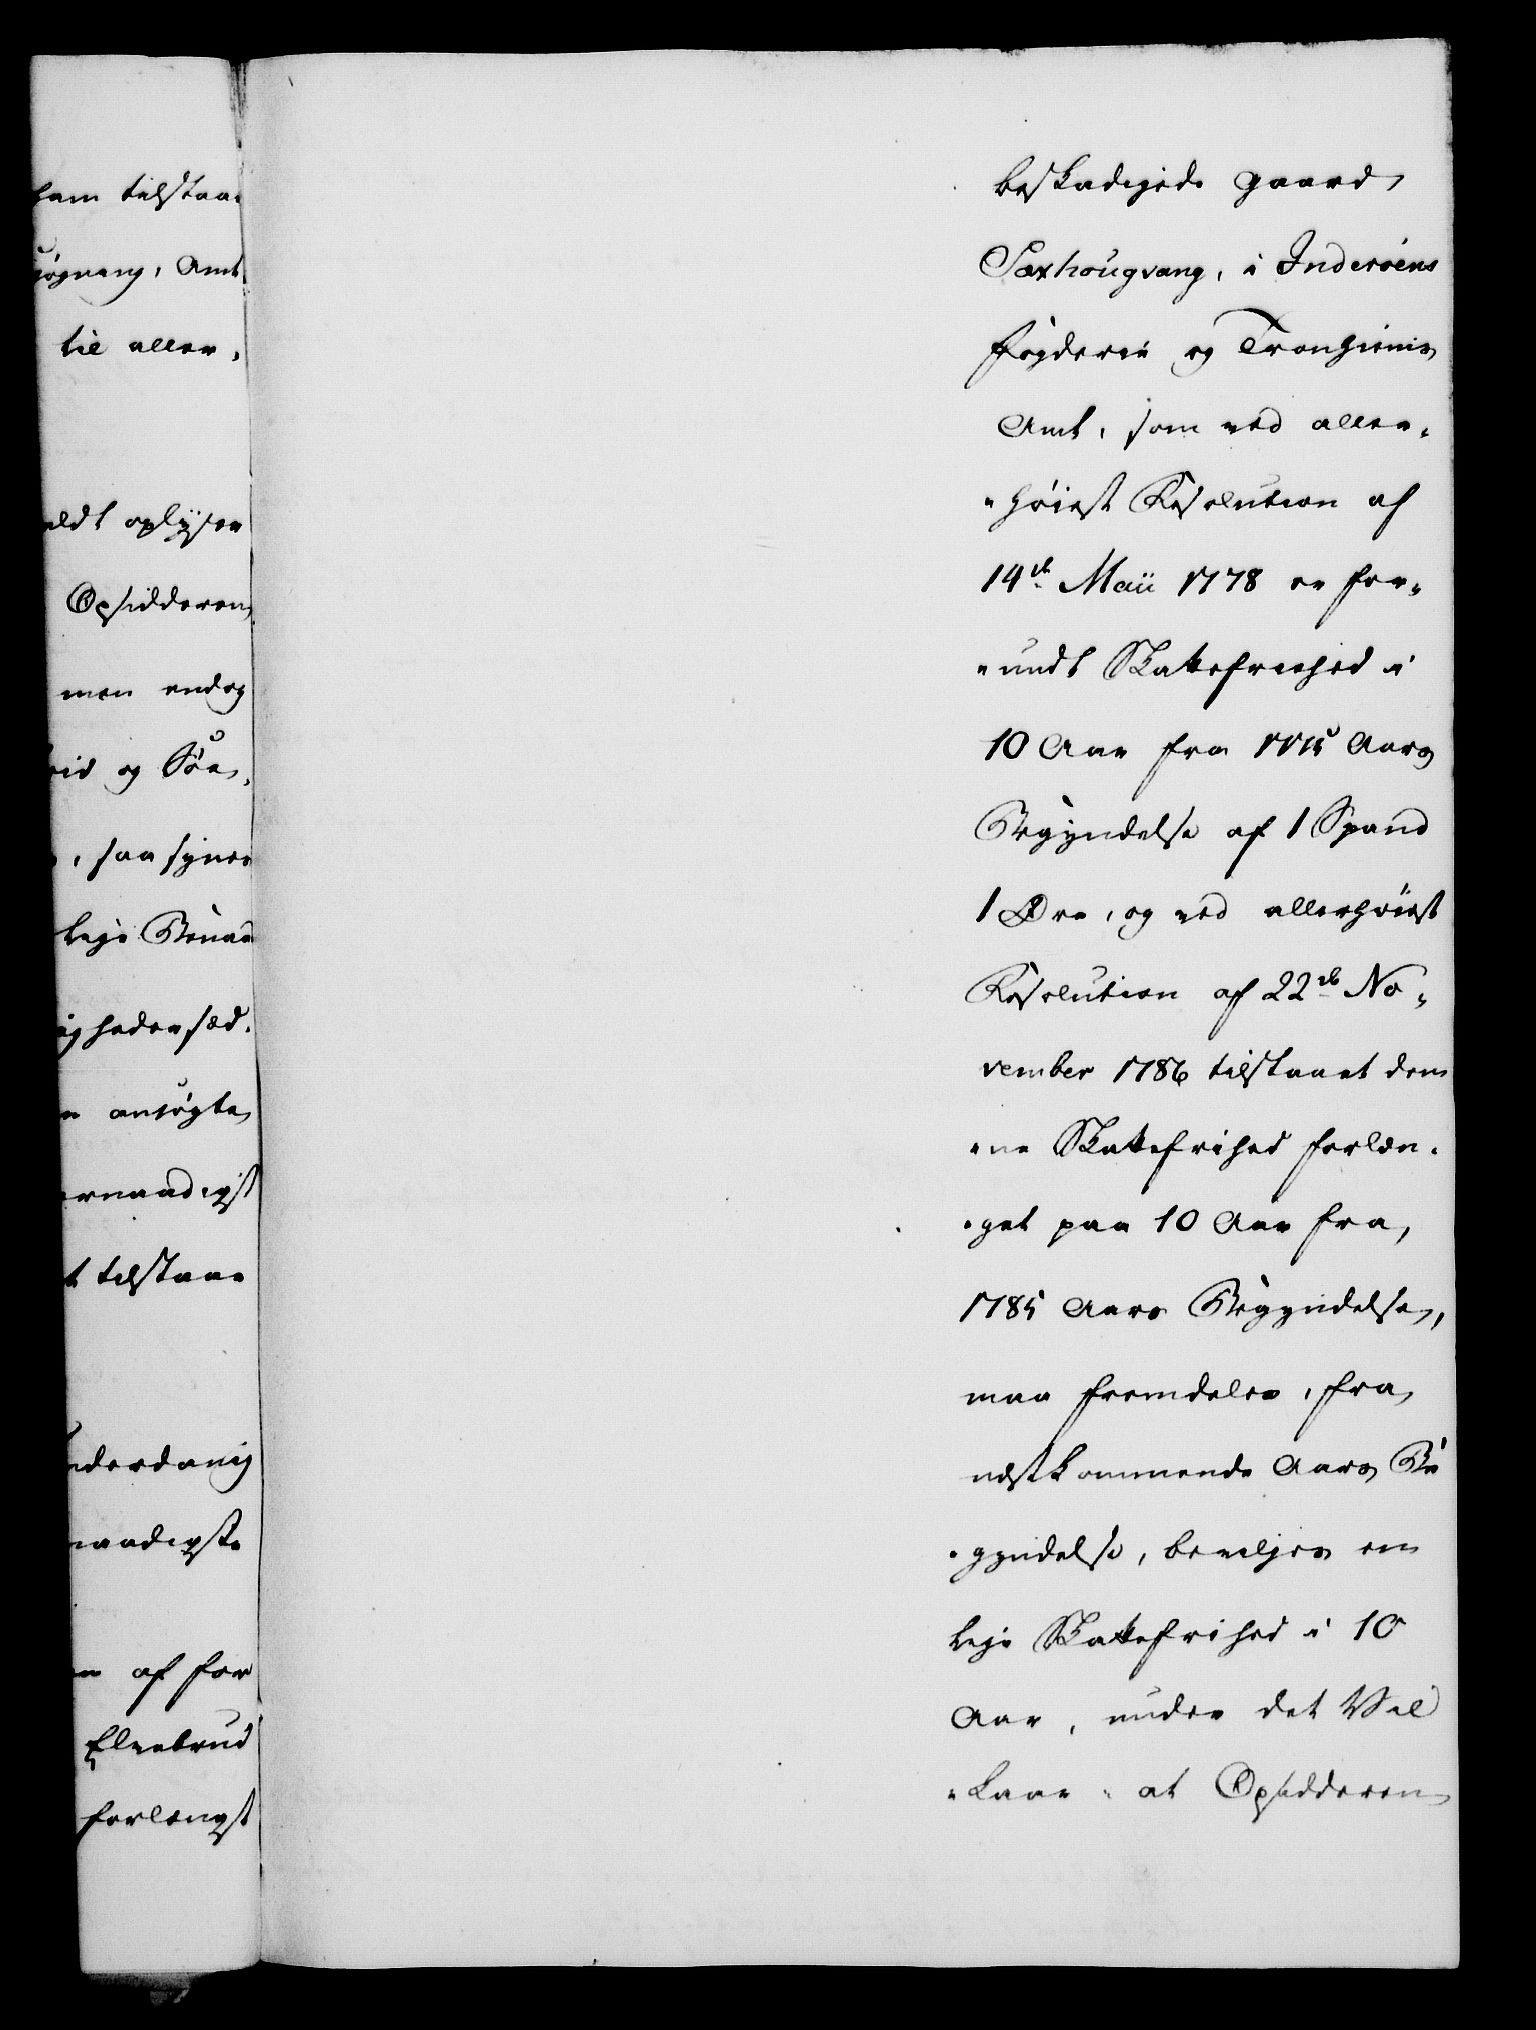 ham tilstaa-
søgning, Amt
til aller-
eldt oplyser
Opsidderen
men endog
og Søe,
, saa synes
lige Benaa
ighedersæd.
ansøgte
ernaadigst
t tilstaae
nderdanig
naadigste
af for
Elvebrud
forlængst
beskadigede Gaard
Saxhougvang, i Inderøens
Fogderie og Tronhiems
Amt, som ved aller-
-høieste Resolution af
14de Maii 1778 er for-
-undt Skattefriehed i
10 Aar fra 1775 Aars
Begyndelse af 1 Spand
1 Øre, og ved allerhøiest
Resolution af 22de No-
vember 1786 tilstaaet den-
-ne Skattefrihed forlæn-
-get paa 10 Aar fra
1785 Aars Begyndelse,
maa fremdeles, fra
næstkommende Aars Be
-gyndelse, bevilges en
lige Skattefrihed i 10
Aar, under det Vil
-kaar at Opsidderen